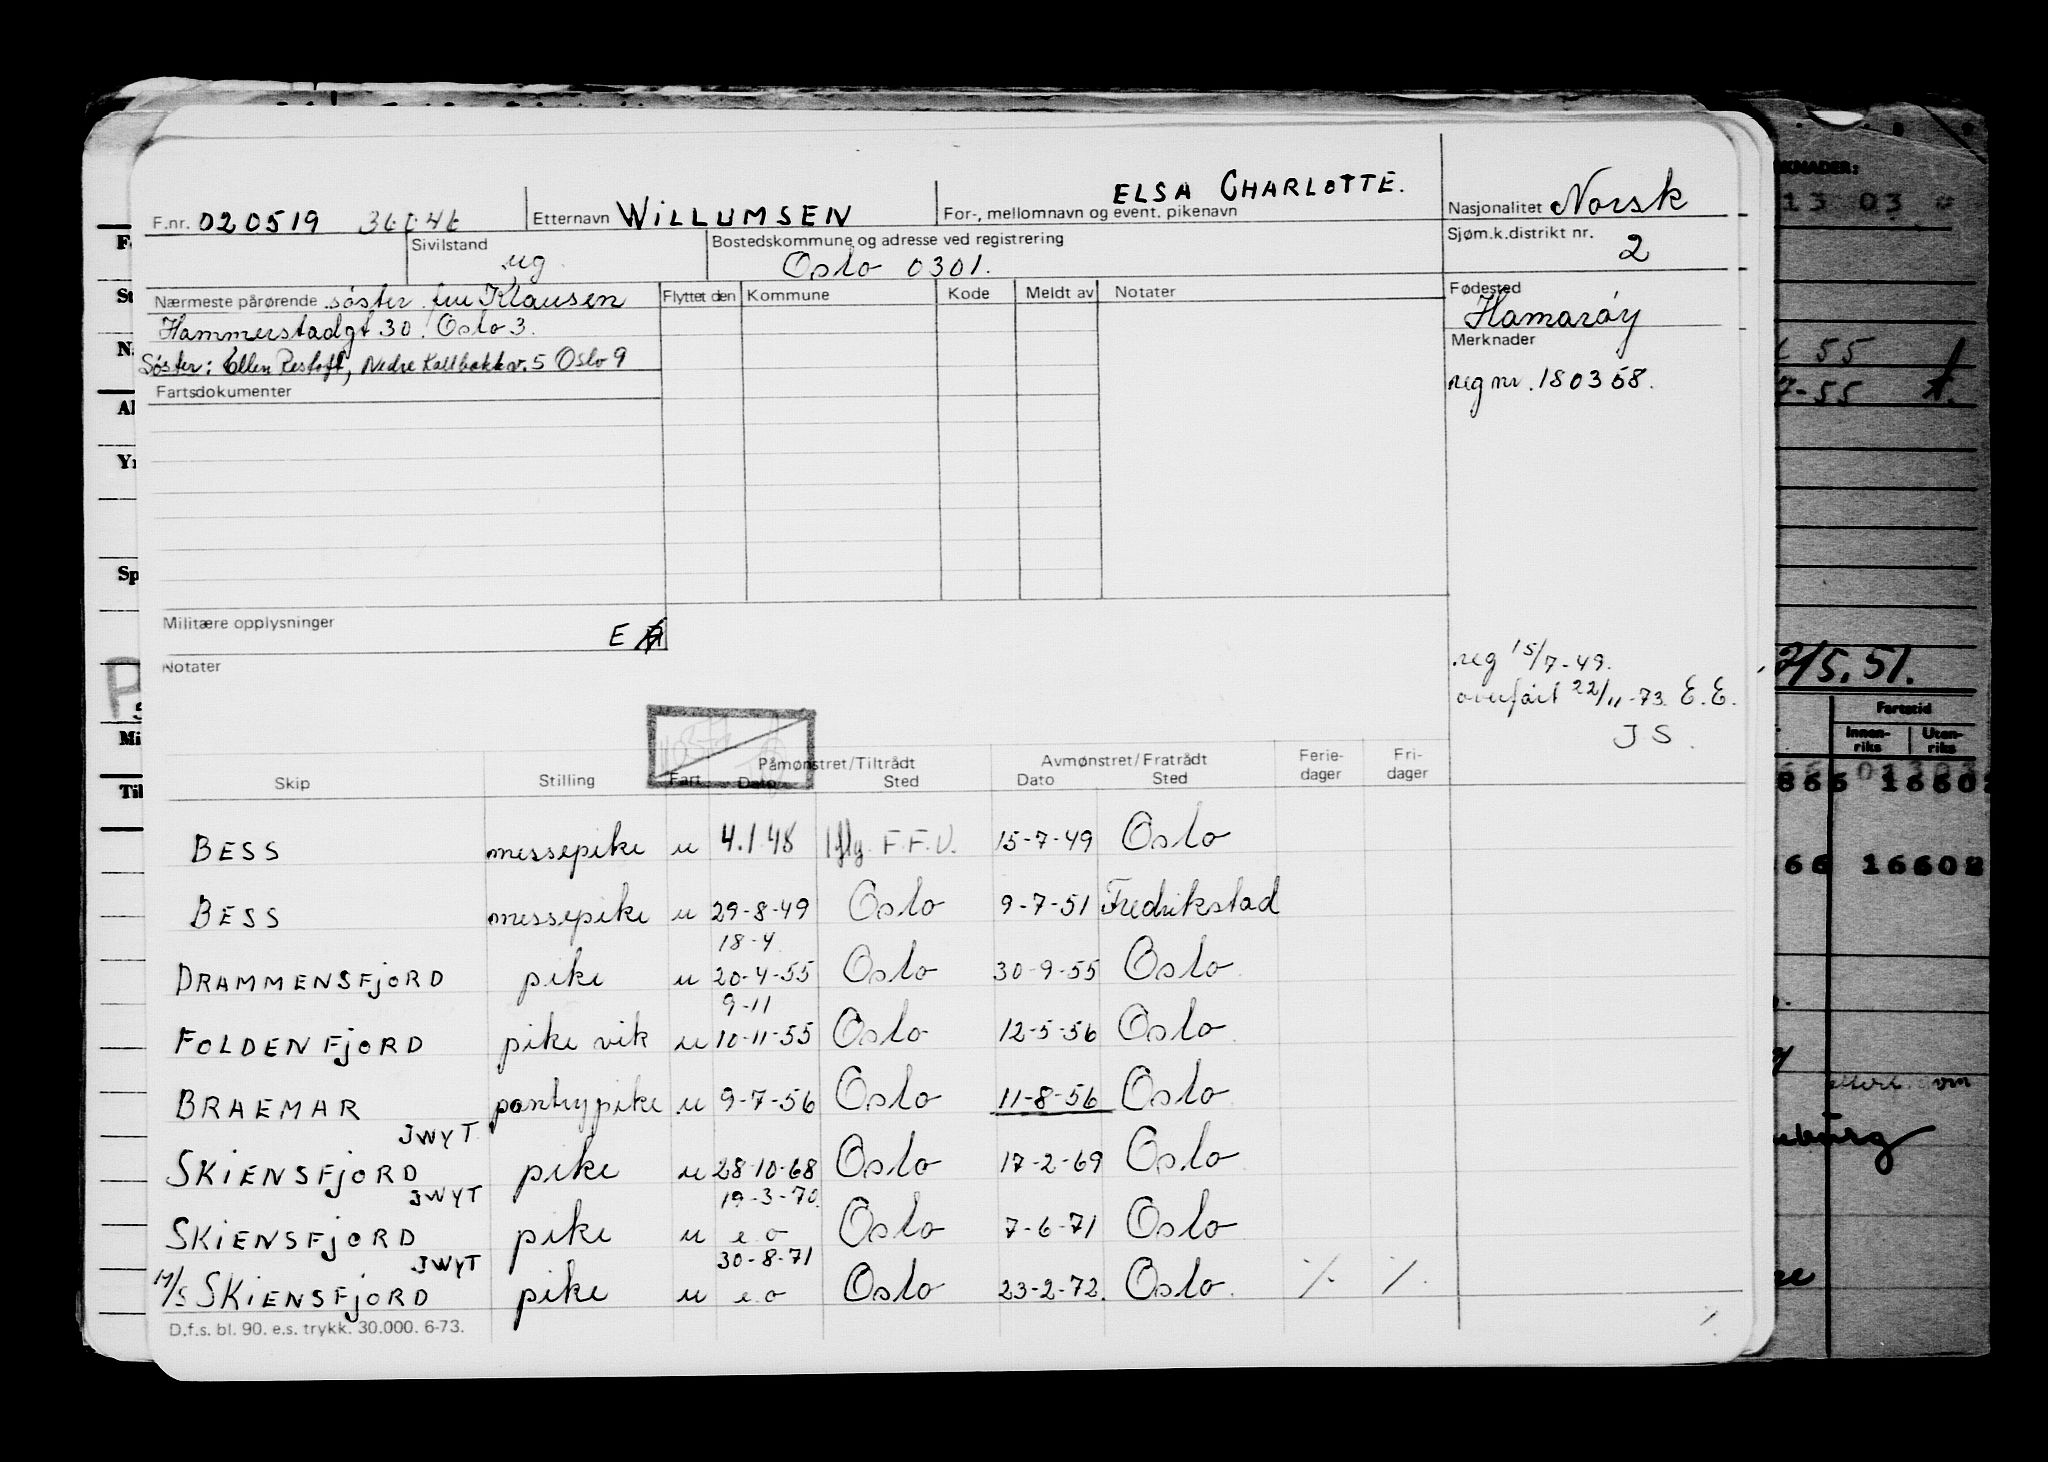 ELSA CHARLOTTE.
F.nr. 020519 Etternavn WILLUMSEN For-, mellomnavn og event. pikenavn Nasjonalitet Norsk
Sivilstand ug Bostedskommune og adresse ved registrering Oslo 0301. Sjøm.k.distrikt nr. 2
Nærmeste pårørende søster fru Klausen Flyttet den Kommune Kode Meldt av Notater Fødested Hamarøy
Hammerstadgt 30. Oslo 3.
Søster: Ellen Nedre Kallbakkv. 5 Oslo 9 Merknader
Fartsdokumenter reg nr. 180358.
Militære opplysninger E
Notater
reg 15/7-49.
overført 22/11-73. E.E.
J S.
Skip Stilling Fart Påmønstret/Tiltrådt Dato Sted Avmønstret/Fratrådt Dato Sted Ferie-dager Fri-dager
BESS messepike u 4.1.48 Iflg. F.F.U. 15-7-49 Oslo
BESS messepike u 29-8-49 Oslo 9-7-51 Fredrikstad
18-4
DRAMMENSFJORD pike u 20-4-55 Oslo 30-9-55 Oslo
9-11
FOLDENFJORD pike vik u 10-11-55 Oslo 12-5-56 Oslo
BRAEMAR pantrypike u 9-7-56 Oslo 11-8-56 Oslo
JWYT
SKIENSFJORD pike u 28-10-68 Oslo 17-2-69 Oslo
JWYT 19-3-70
SKIENSFJORD pike u e o Oslo 7-6-71 Oslo
JWYT 30-8-71
M/S SKIENSFJORD pike u e o Oslo 23-2-72. Oslo
D.f.s. bl. 90. e.s. trykk. 30.000. 6-73.
KNADER:
13 03
55
7-55
2/5.51.
Fartstid
Innen-riks Uten-riks
866 16602
66 16602